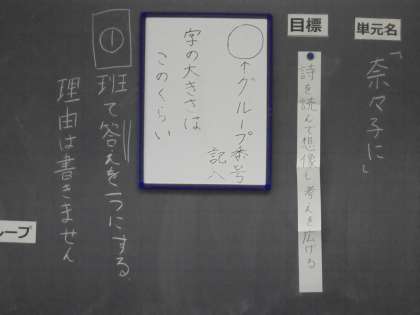 単元名
「奈々子に」
目標
詩を読んで想像し考えを広げる
○↑グループ番号
記入
字の大きさは
このくらい
①
班で答えを一つにする
理由は書きません
ループ